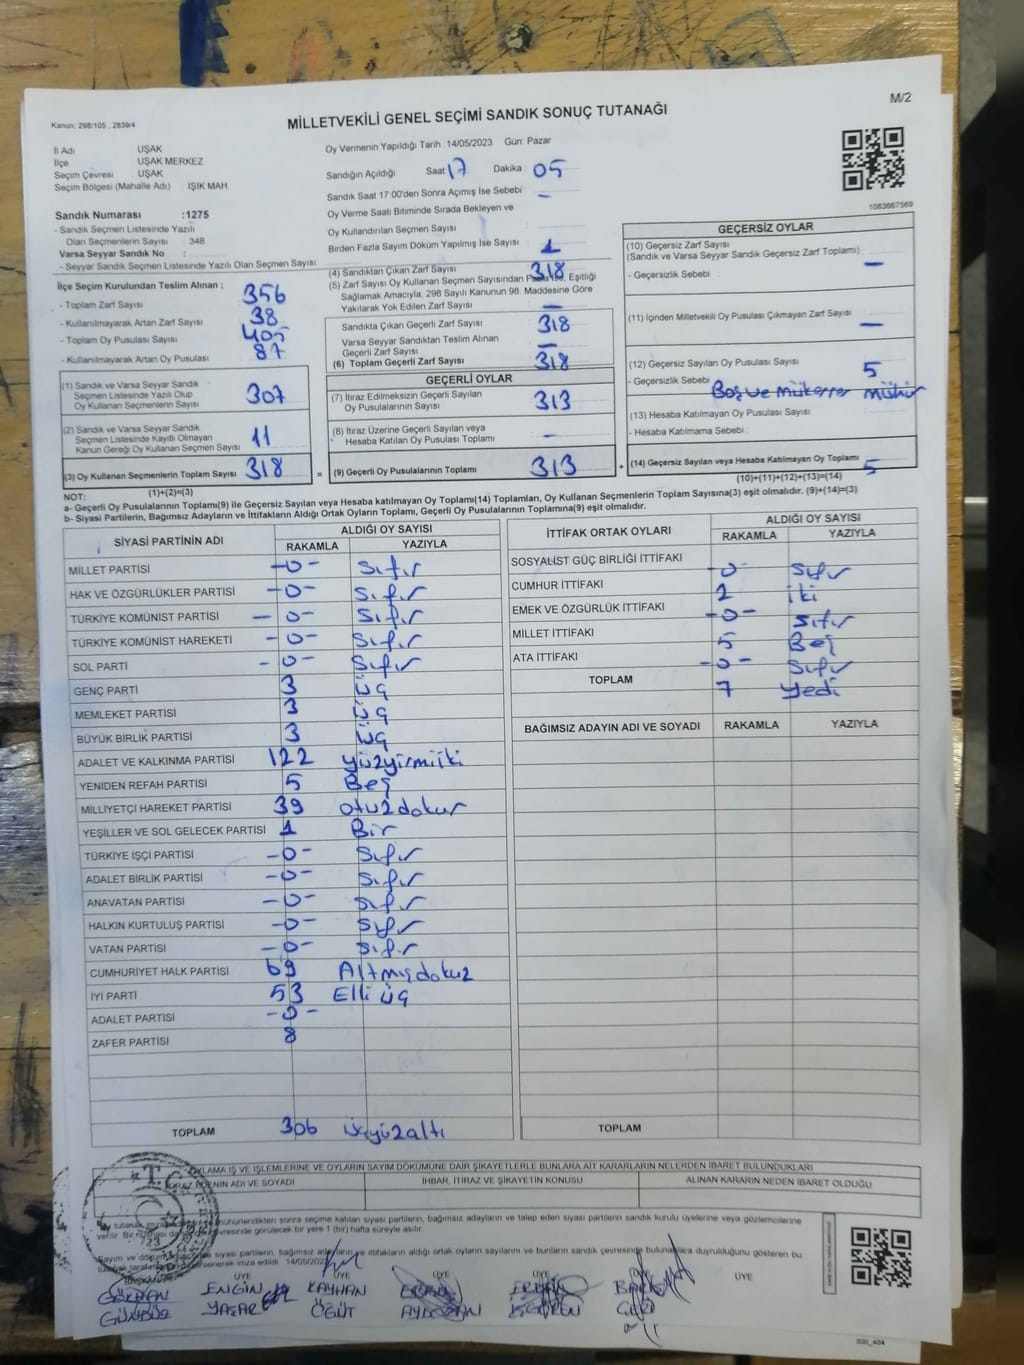 M/2
Kanun: 298/105 , 2839/4
MİLLETVEKİLİ GENEL SEÇİMİ SANDIK SONUÇ TUTANAĞI
İl Adı UŞAK
İlçe UŞAK MERKEZ
Seçim Çevresi : UŞAK
Seçim Bölgesi (Mahalle Adı) : IŞIK MAH
Sandık Numarası :1275
- Sandık Seçmen Listesinde Yazılı
Olan Seçmenlerin Sayısı : 348
Varsa Seyyar Sandık No :
- Seyyar Sandık Seçmen Listesinde Yazılı Olan Seçmen Sayısı
Oy Vermenin Yapıldığı Tarih : 14/05/2023 Gün: Pazar
Sandığın Açıldığı Saat 17 Dakika 05
Sandık Saat 17:00'den Sonra Açımış İse Sebebi : -
Oy Verme Saati Bitiminde Sırada Bekleyen ve
Oy Kullandırılan Seçmen Sayısı
Birden Fazla Sayım Döküm Yapılmış İse Sayısı 1
1083667569
İlçe Seçim Kurulundan Teslim Alınan ;
- Toplam Zarf Sayısı 356
- Kullanılmayarak Artan Zarf Sayısı 38
- Toplam Oy Pusulası Sayısı 405
- Kullanılmayarak Artan Oy Pusulası 87
(1) Sandık ve Varsa Seyyar Sandık
Seçmen Listesinde Yazılı Olup
Oy Kullanan Seçmenlerin Sayısı 307
(2) Sandık ve Varsa Seyyar Sandık
Seçmen Listesinde Kayıtlı Olmayan
Kanun Gereği Oy Kullanan Seçmen Sayısı 11
(3) Oy Kullanan Seçmenlerin Toplam Sayısı 318 =
(1)+(2)=(3)
(4) Sandıktan Çıkan Zarf Sayısı 318
(5) Zarf Sayısı Oy Kullanan Seçmen Sayısından Fazla İse, Eşitliği
Sağlamak Amacıyla, 298 Sayılı Kanunun 98. Maddesine Göre
Yakılarak Yok Edilen Zarf Sayısı -
Sandıkta Çıkan Geçerli Zarf Sayısı 318
Varsa Seyyar Sandıktan Teslim Alınan
Geçerli Zarf Sayısı -
(6) Toplam Geçerli Zarf Sayısı 318
GEÇERLİ OYLAR
(7) İtiraz Edilmeksizin Geçerli Sayılan
Oy Pusulalarının Sayısı 313
(8) İtiraz Üzerine Geçerli Sayılan veya
Hesaba Katılan Oy Pusulası Toplamı -
(9) Geçerli Oy Pusulalarının Toplamı 313 +
GEÇERSİZ OYLAR
(10) Geçersiz Zarf Sayısı
(Sandık ve Varsa Seyyar Sandık Geçersiz Zarf Toplamı) : -
- Geçersizlik Sebebi :
(11) İçinden Milletvekili Oy Pusulası Çıkmayan Zarf Sayısı -
(12) Geçersiz Sayılan Oy Pusulası Sayısı 5
- Geçersizlik Sebebi Boş ve Mükerrer mühür
(13) Hesaba Katılmayan Oy Pusulası Sayısı
- Hesaba Katılmama Sebebi :
(14) Geçersiz Sayılan veya Hesaba Katılmayan Oy Toplamı 5
(10)+(11)+(12)+(13)=(14)
NOT:
a- Geçerli Oy Pusulalarının Toplamı(9) ile Geçersiz Sayılan veya Hesaba katılmayan Oy Toplamı(14) Toplamları, Oy Kullanan Seçmenlerin Toplam Sayısına(3) eşit olmalıdır. (9)+(14)=(3)
b- Siyasi Partilerin, Bağımsız Adayların ve İttifakların Aldığı Ortak Oyların Toplamı, Geçerli Oy Pusulalarının Toplamına(9) eşit olmalıdır.
SİYASİ PARTİNİN ADI ALDIĞI OY SAYISI
RAKAMLA YAZIYLA
MİLLET PARTİSİ -0- Sıfır
HAK VE ÖZGÜRLÜKLER PARTİSİ -0- Sıfır
TÜRKİYE KOMÜNİST PARTİSİ -0- Sıfır
TÜRKİYE KOMÜNİST HAREKETİ -0- Sıfır
SOL PARTİ -0- Sıfır
GENÇ PARTİ 3 üç
MEMLEKET PARTİSİ 3 üç
BÜYÜK BİRLİK PARTİSİ 3 üç
ADALET VE KALKINMA PARTİSİ 122 yüzyirmiiki
YENİDEN REFAH PARTİSİ 5 Beş
MİLLİYETÇİ HAREKET PARTİSİ 39 otuzdokuz
YEŞİLLER VE SOL GELECEK PARTİSİ 1 Bir
TÜRKİYE İŞÇİ PARTİSİ -0- Sıfır
ADALET BİRLİK PARTİSİ -0- Sıfır
ANAVATAN PARTİSİ -0- Sıfır
HALKIN KURTULUŞ PARTİSİ -0- Sıfır
VATAN PARTİSİ -0- Sıfır
CUMHURİYET HALK PARTİSİ 69 Altmışdokuz
İYİ PARTİ 53 Elli üç
ADALET PARTİSİ -0-
ZAFER PARTİSİ 8
TOPLAM 306 üçyüzaltı
İTTİFAK ORTAK OYLARI ALDIĞI OY SAYISI
RAKAMLA YAZIYLA
SOSYALİST GÜÇ BİRLİĞİ İTTİFAKI -0- Sıfır
CUMHUR İTTİFAKI 2 iki
EMEK VE ÖZGÜRLÜK İTTİFAKI -0- Sıfır
MİLLET İTTİFAKI 5 Beş
ATA İTTİFAKI -0- Sıfır
TOPLAM 7 yedi
BAĞIMSIZ ADAYIN ADI VE SOYADI RAKAMLA YAZIYLA
TOPLAM
İŞ VE İŞLEMLERİNE VE OYLARIN SAYIM DÖKÜMÜNE DAİR ŞİKAYETLERLE BUNLARA AİT KARARLARIN NELERDEN İBARET BULUNDUKLARI
ADI VE SOYADI İHBAR, İTİRAZ VE ŞİKAYETİN KONUSU ALINAN KARARIN NEDEN İBARET OLDUĞU
T.C.
mühürlendikten sonra seçime katılan siyasi partilerin, bağımsız adayların ve talep eden siyasi partilerin sandık kurulu üyelerine veya gözlemcilerine
verilir. Bir çevresinde görülecek bir yere 1 (bir) hafta süreyle asılır.
Sayım ve siyasi partilerin, bağımsız adayların ve ittifakların aldığı ortak oyların sayılarını ve bunların sandık çevresinde bulunanlara duyrulduğunu gösteren bu
tutanak düzenlenerek imza edildi. 14/05/2023
ÜYE ÜYE ÜYE ÜYE ÜYE ÜYE
GÖKHAN ENGİN KAYHAN
YAŞAR ÖĞÜT
BBI_404